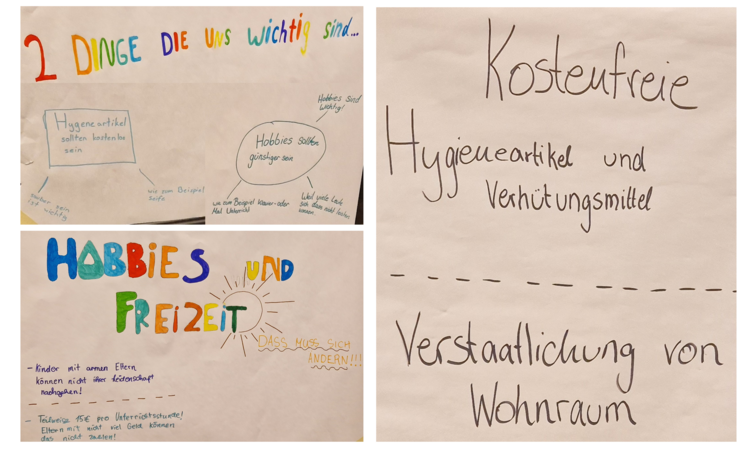 2 DINGE DIE UNS wichtig sind...
Hygeneartikel
sollten kostenlos
sein
sauber sein
ist wichtig
wie zum Beispiel
Seife
Hobbies sind
wichtig!
Hobbies sollten
günstiger sein
wie zum Beispiel Klavier- oder
Mal Unterricht
Weil viele Leute
sich das nicht leisten
können
HOBBIES UND
FREIZEIT
DASS MUSS SICH
ÄNDERN!!!
- Kinder mit armen Eltern
können nicht ihrer Leidenschaft
nachgehen!
- Teilweise 15€ pro Unterrichtsstunde!
Eltern mit nicht viel Geld können
das nicht zahlen!
Kostenfreie
Hygieneartikel und
Verhütungsmittel
Verstaatlichung von
Wohnraum